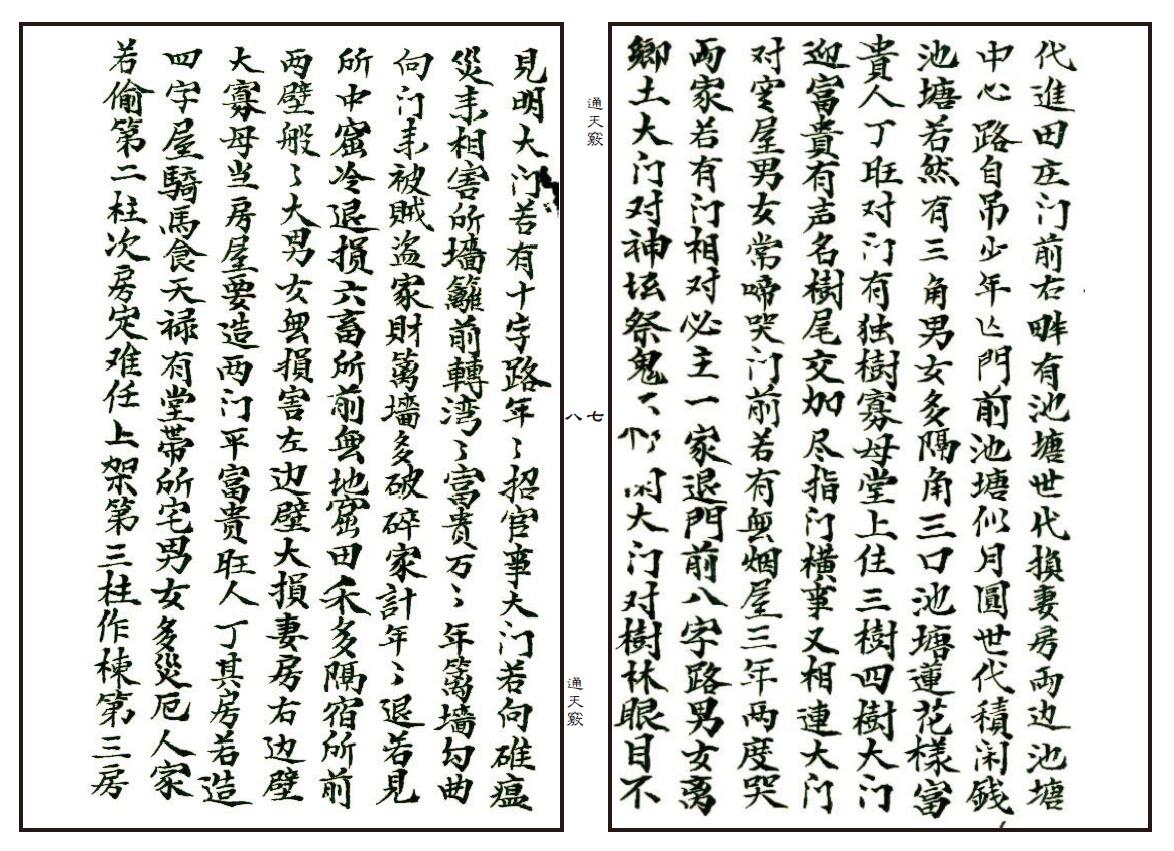 代進田庄门前右畔有池塘世代換妻房両边池塘
中心路自吊少年亾門前池塘似月圓世代積闲銭
池塘若然有三角男女多隔角三口池塘蓮花樣富
貴人丁旺对门有独樹寡母堂上住三樹四樹大门
迎富貴有声名樹尾交加尽指门橫事又相連大门
对空屋男女常啼哭门前若有無烟屋三年両度哭
両家若有门相对必主一家退門前八字路男女离
鄉土大门对神坛祭鬼
大门对樹林眼目不
通天竅
七八
通天竅
見明大门若有十字路年〻招官事大门若向碓瘟
災耒相害所墻籬前轉湾〻富貴万〻年篱墻勾曲
向门耒被賊盗家財篱墻多破碎家計年〻退若見
所中窟冷退損六畜所前無地窟田禾多隔宿所前
两壁般〻大男女無損害左边壁大損妻房右边壁
大寡母当房屋要造两门平富貴旺人丁其房若造
四字屋騎馬食天禄有堂帶所宅男女多災厄人家
若偷第二柱次房定难任上架第三柱作棟第三房